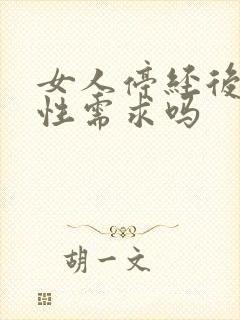 女人停经後
性需求吗
胡一文